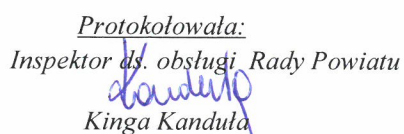 Protokołowała:
Inspektor ds. obsługi Rady Powiatu
Kanduła
Kinga Kanduła